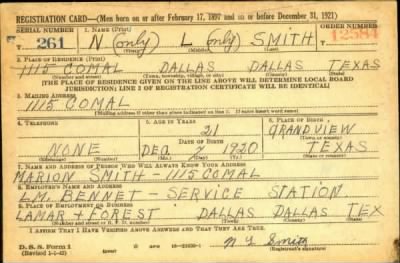 REGISTRATION CARD—(Men born on or after February 17, 1897 and on or before December 31, 1921)
SERIAL NUMBER 1. NAME (Print) ORDER NUMBER
T 261 N (only) L (only) SMITH 12584
(First) (Middle) (Last)
2. PLACE OF RESIDENCE (Print)
1115 COMAL DALLAS DALLAS TEXAS
(Number and street) (Town, township, village, or city) (County) (State)
[THE PLACE OF RESIDENCE GIVEN ON THE LINE ABOVE WILL DETERMINE LOCAL BOARD
JURISDICTION; LINE 2 OF REGISTRATION CERTIFICATE WILL BE IDENTICAL]
3. MAILING ADDRESS
1115 COMAL
[Mailing address if other than place indicated on line 2. If same insert word same]
4. TELEPHONE 5. AGE IN YEARS 6. PLACE OF BIRTH
21 GRANDVIEW
DATE OF BIRTH
NONE DEC 7 1920 TEXAS
7. NAME AND ADDRESS OF PERSON WHO WILL ALWAYS KNOW YOUR ADDRESS
MARION SMITH - 1115 COMAL
8. EMPLOYER'S NAME AND ADDRESS
L.M. BENNET - SERVICE STATION
9. PLACE OF EMPLOYMENT OR BUSINESS
LAMAR + FOREST DALLAS DALLAS TEX
(Number and street or R. F. D. number) (Town) (County) (State)
I AFFIRM THAT I HAVE VERIFIED ABOVE ANSWERS AND THAT THEY ARE TRUE.
D. S. S. Form 1
(Revised 1-1-42) (over) N L Smith
(Registrant's signature)